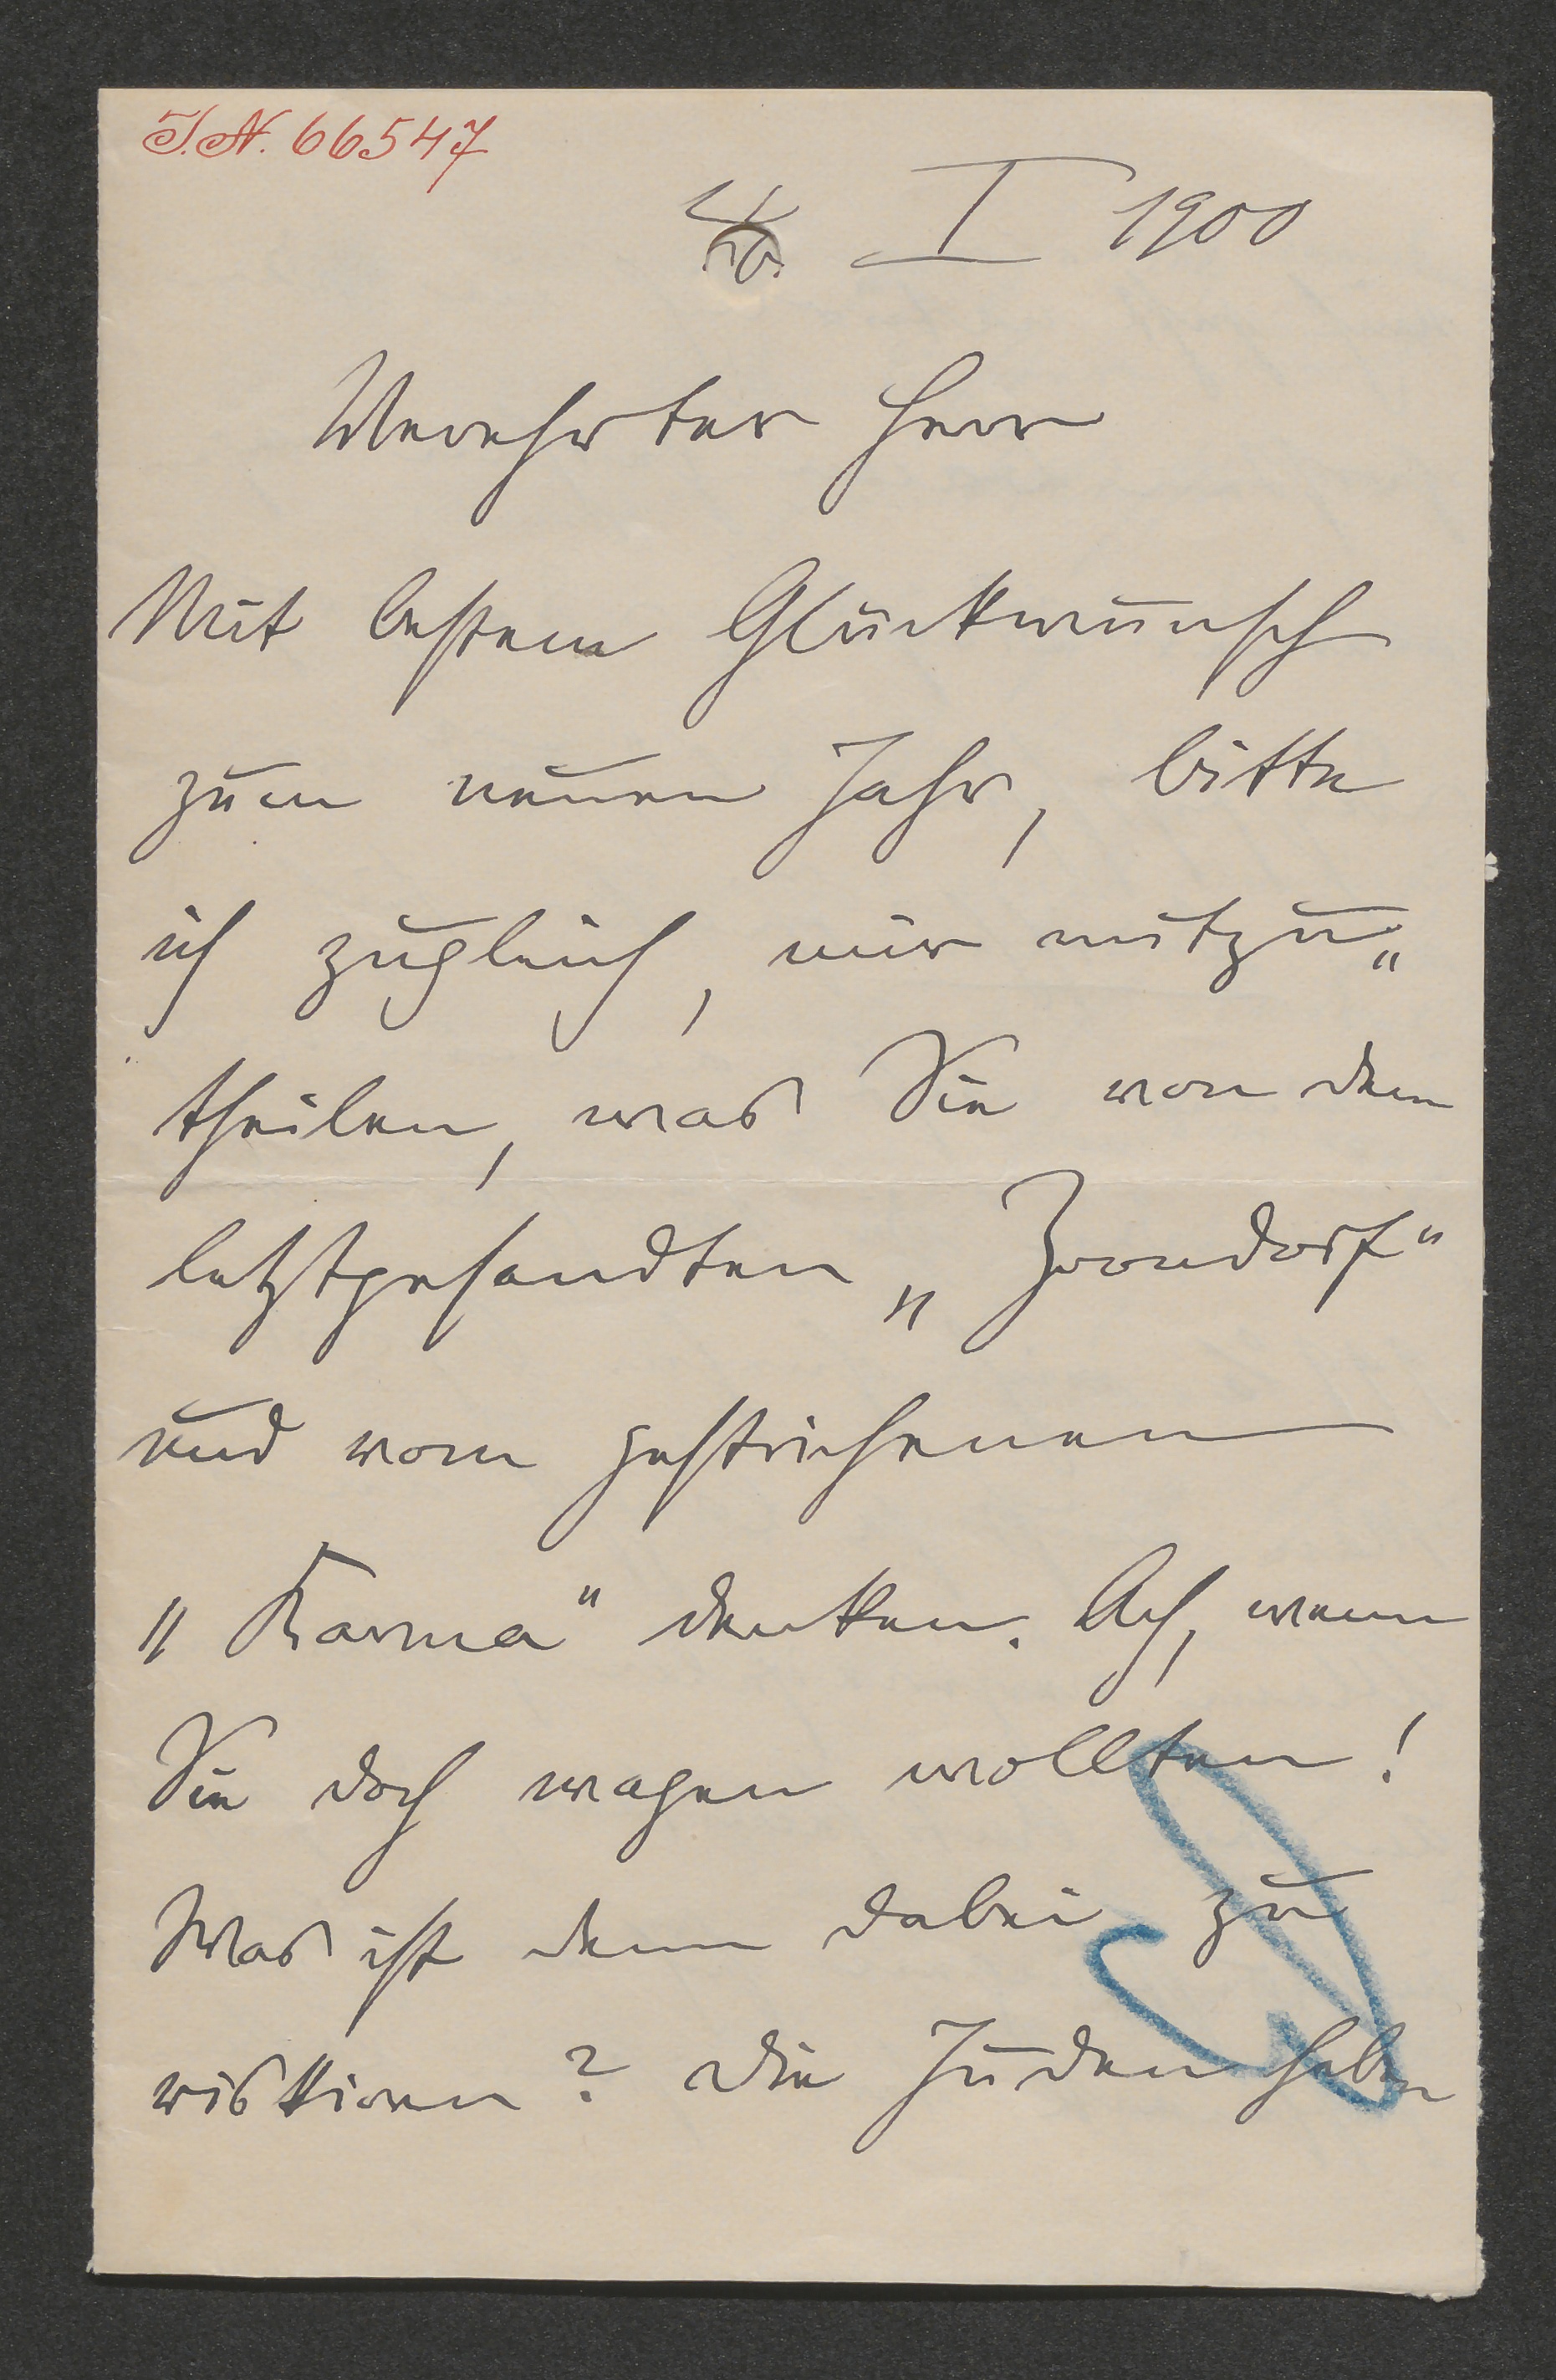 I.N. 66547
4. I 1900
Verehrter Herr
Mit bestem Glückwunsch
zum neuen Jahr, bitte
ich zugleich, mir mitzu„
theilen, was Sie von dem
letztgesandten „Zorndorf“
und vom gestrichenen
„Karma“ denken. Ach, wenn
Sie doch wagen wollten!
Was ist denn dabei zu
riskiren? Die Juden haben